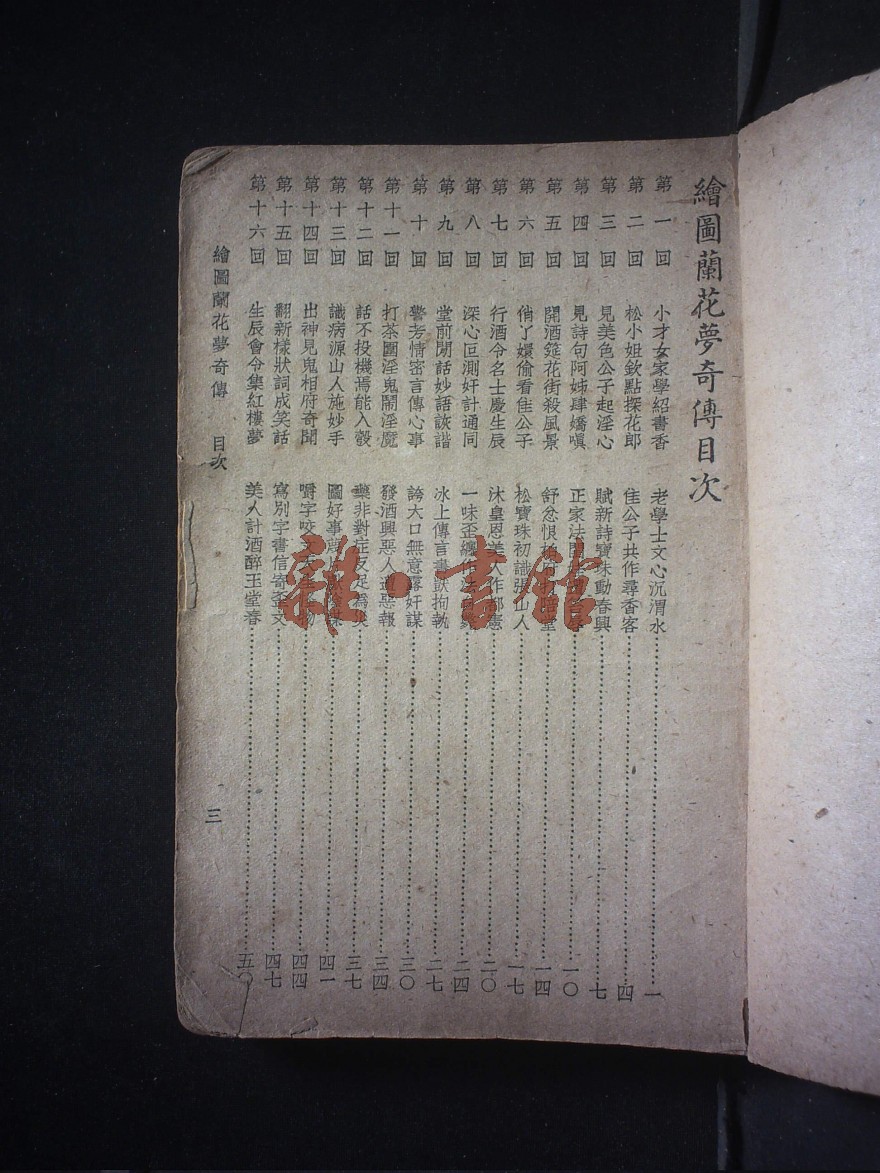 繪圖蘭花夢奇傳目次
第一回 小才女家學紹書香 老學士文心沉渭水 一
第二回 松小姐欽點探花郎 佳公子共作尋香客 四
第三回 見美色公子起淫心 賦新詩寶珠動春興 七
第四回 見詩句阿姊肆嬌嗔 正家法 一〇
第五回 開酒筵花街殺風景 舒忿恨 堂 一四
第六回 俏丫嬛偷看佳公子 松寶珠初識張山人 一七
第七回 行酒令名士慶生辰 沐皇恩美人作都憲 二〇
第八回 深心叵測奸計通同 一味歪纏 二四
第九回 堂前閒話妙語詼諧 冰上傳言書獃拘執 二七
第十回 警芳情密言傳心事 誇大口無意露奸謀 三〇
第十一回 打茶圍淫鬼鬧淫魔 發酒興惡人遭惡報 三四
第十二回 話不投機焉能入彀 藥非對症反足為災 三七
第十三回 識病源山人施妙手 圖好事 四一
第十四回 出神見鬼相府奇聞 嚼字咬文 四四
第十五回 翻新樣狀詞成笑話 寫別字書信寄歪文 四七
第十六回 生辰會令集紅樓夢 美人計酒醉玉堂春 五〇
繪圖蘭花夢奇傳 目次
三
雜·書館